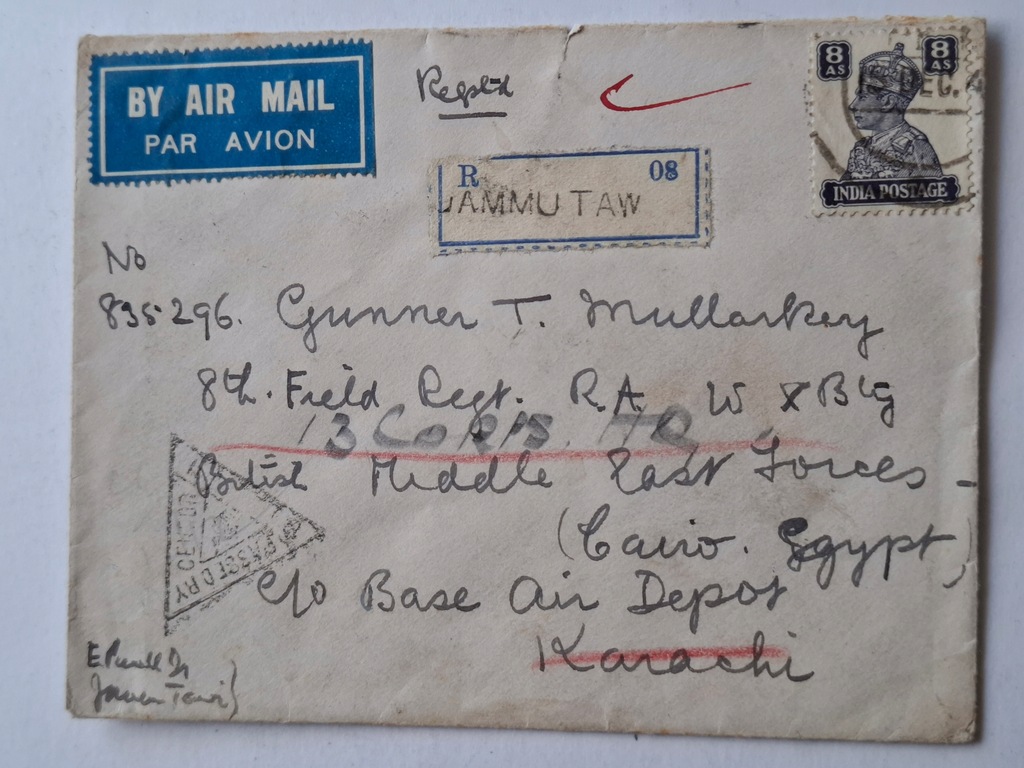 BY AIR MAIL
PAR AVION
Regstd
8 AS 8 AS
DEC.
INDIA POSTAGE
R 08
JAMMU TAW
No
835296. Gunner T. Mullarkey
8th. Field Regt. R.A. W X Btg
13 Corps. HQ
British Middle East Forces -
(Cairo. Egypt)
c/o Base Air Depot
Karachi
PASSED BY CENSOR